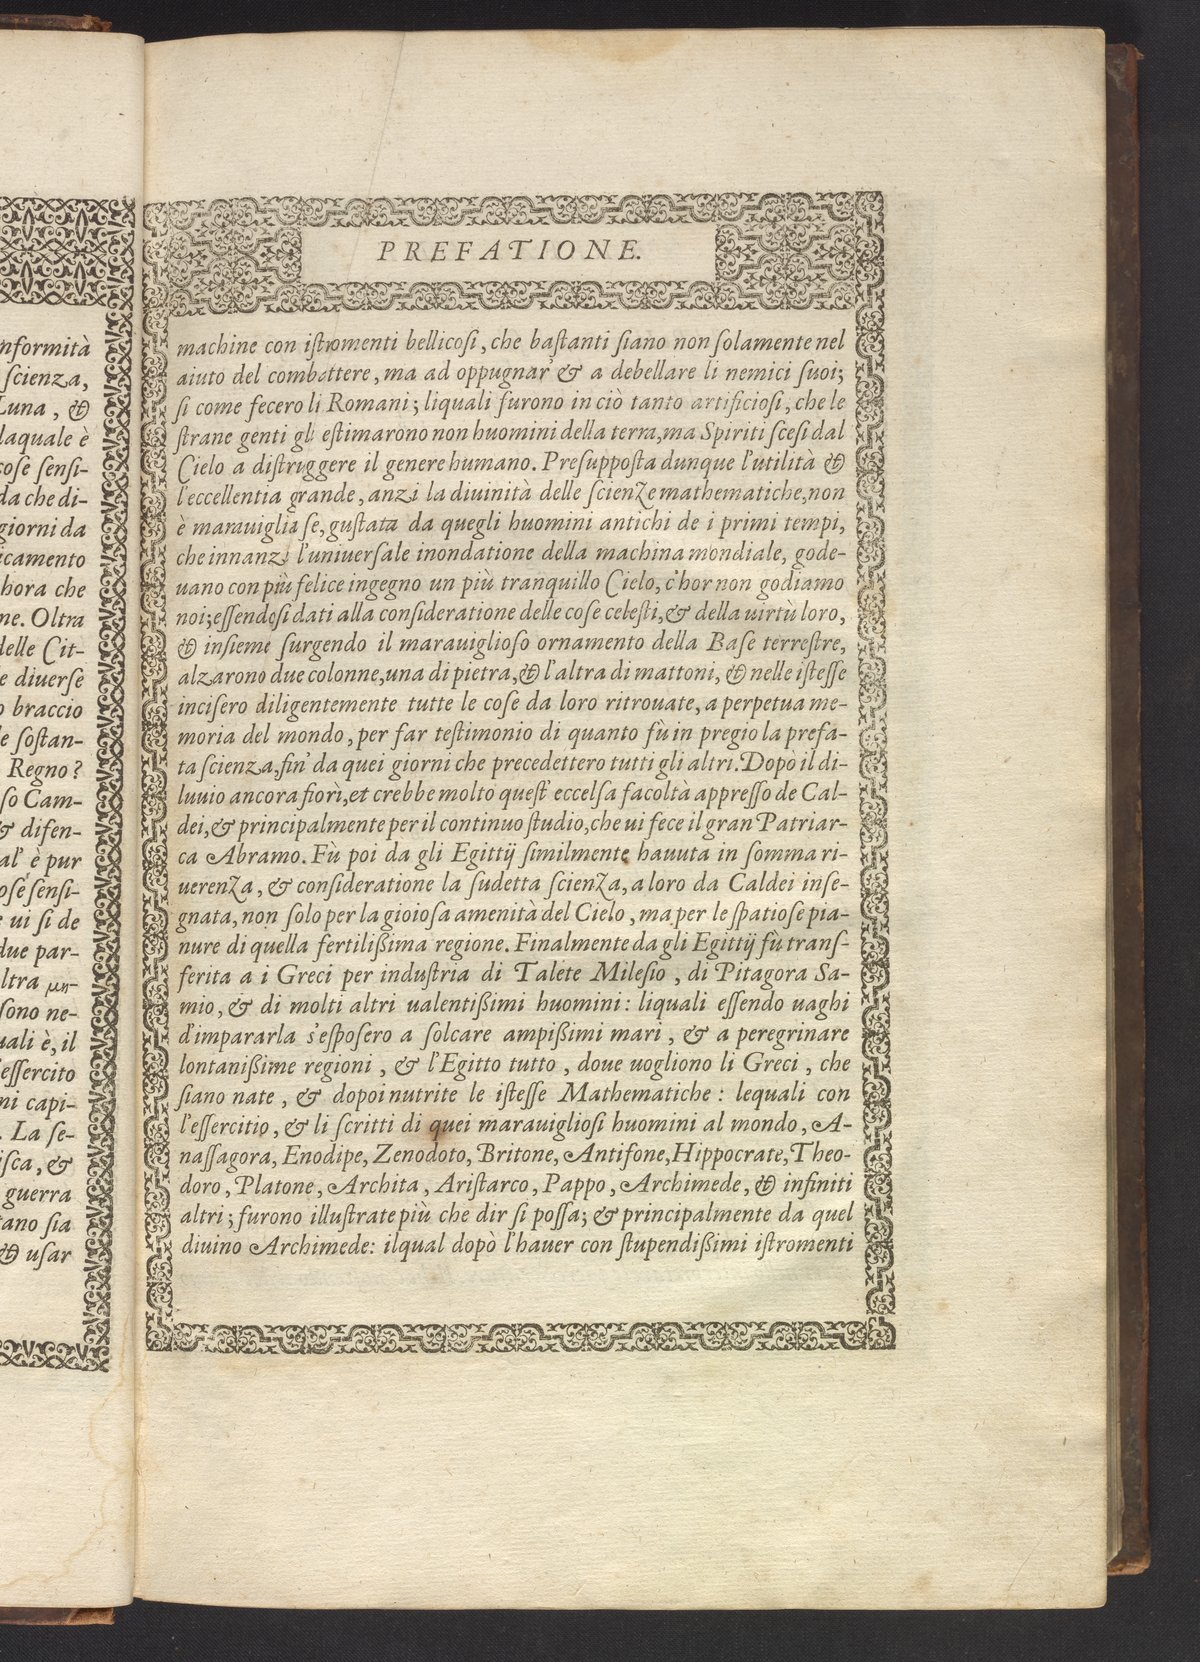 nformità
scienza,
Luna, &
laquale è
cose sensi-
da che di-
giorni da
icamento
hora che
ne. Oltra
delle Cit-
e diuerse
o braccio
le sostan-
Regno?
so Cam-
& difen-
al' è pur
ose sensi-
e ui si de
due par-
ltra μη-
sono ne-
uali è, il
essercito
ni capi-
. La se-
isca, &
guerra
tano sia
& usar
PREFATIONE.
machine con istromenti bellicosi, che bastanti siano non solamente nel
aiuto del combattere, ma ad oppugnar' & a debellare li nemici suoi;
si come fecero li Romani; liquali furono in ciò tanto artificiosi, che le
strane genti gli estimarono non huomini della terra, ma Spiriti scesi dal
Cielo a distruggere il genere humano. Presupposta dunque l'utilità &
l'eccellentia grande, anzi la diuinità delle scienze mathematiche, non
è marauiglia se, gustata da quegli huomini antichi de i primi tempi,
che innanzi l'uniuersale inondatione della machina mondiale, gode-
uano con più felice ingegno un più tranquillo Cielo, c'hor non godiamo
noi; essendosi dati alla consideratione delle cose celesti, & della uirtù loro,
& insieme surgendo il marauiglioso ornamento della Base terrestre,
alzarono due colonne, una di pietra, & l'altra di mattoni, & nelle istesse
incisero diligentemente tutte le cose da loro ritrouate, a perpetua me-
moria del mondo, per far testimonio di quanto fù in pregio la prefa-
ta scienza, fin' da quei giorni che precedettero tutti gli altri. Dopò il di-
luuio ancora fiorì, et crebbe molto quest' eccelsa facoltà appresso de Cal-
dei, & principalmente per il continuo studio, che ui fece il gran Patriar-
ca Abramo. Fù poi da gli Egittij similmente hauuta in somma ri-
uerenza, & consideratione la sudetta scienza, a loro da Caldei inse-
gnata, non solo per la gioiosa amenità del Cielo, ma per le spatiose pia-
nure di quella fertilißima regione. Finalmente da gli Egittij fù trans-
ferita a i Greci per industria di Talete Milesio, di Pitagora Sa-
mio, & di molti altri ualentißimi huomini: liquali essendo uaghi
d'impararla s'esposero a solcare ampißimi mari, & a peregrinare
lontanißime regioni, & l'Egitto tutto, doue uogliono li Greci, che
siano nate, & dopoi nutrite le istesse Mathematiche: lequali con
l'essercitio, & li scritti di quei marauigliosi huomini al mondo, A-
nassagora, Enodipe, Zenodoto, Britone, Antifone, Hippocrate, Theo-
doro, Platone, Archita, Aristarco, Pappo, Archimede, & infiniti
altri; furono illustrate più che dir si possa; & principalmente da quel
diuino Archimede: ilqual dopò l'hauer con stupendißimi istromenti